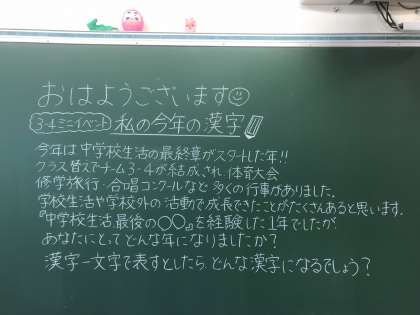 おはようございます
3-4ミニイベント 私の今年の漢字
今年は中学校生活の最終章がスタートした年!!
クラス替えでチーム3-4が結成され、体育大会
修学旅行・合唱コンクールなど多くの行事がありました。
学校生活や学校外の活動で成長できたことがたくさんあると思います。
『中学校生活最後の〇〇』を経験した1年でしたが、
あなたにとってどんな年になりましたか?
漢字一文字で表すとしたら、どんな漢字になるでしょう?